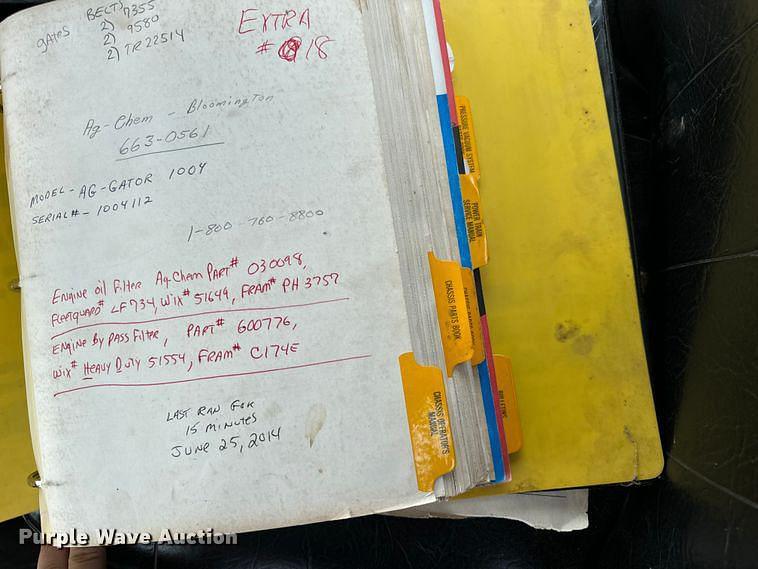 BELTS
GATES 2) 7355
2) 9580
2) TR22514
EXTRA
# 18
Ag-Chem - Bloomington
663-0561
MODEL - AG-GATOR 1004
SERIAL# - 1004112
1-800-760-8800
ENGINE oil Filter Ag Chem PART# 030098,
FLEETGUARD# LF734, WIX# 51649, FRAM# PH 3757
ENGINE By PASS FilTER, PART# 600776,
WIX# HEAVY DUTY 51554, FRAM# C174E
LAST RAN FOR
15 MINUTES
JUNE 25, 2014
PRESSURE VACUUM SYSTEM
POWER TRAIN
SERVICE MANUAL
CHASSIS PARTS BOOK
CHASSIS OPERATOR'S
MANUAL
Purple Wave Auction